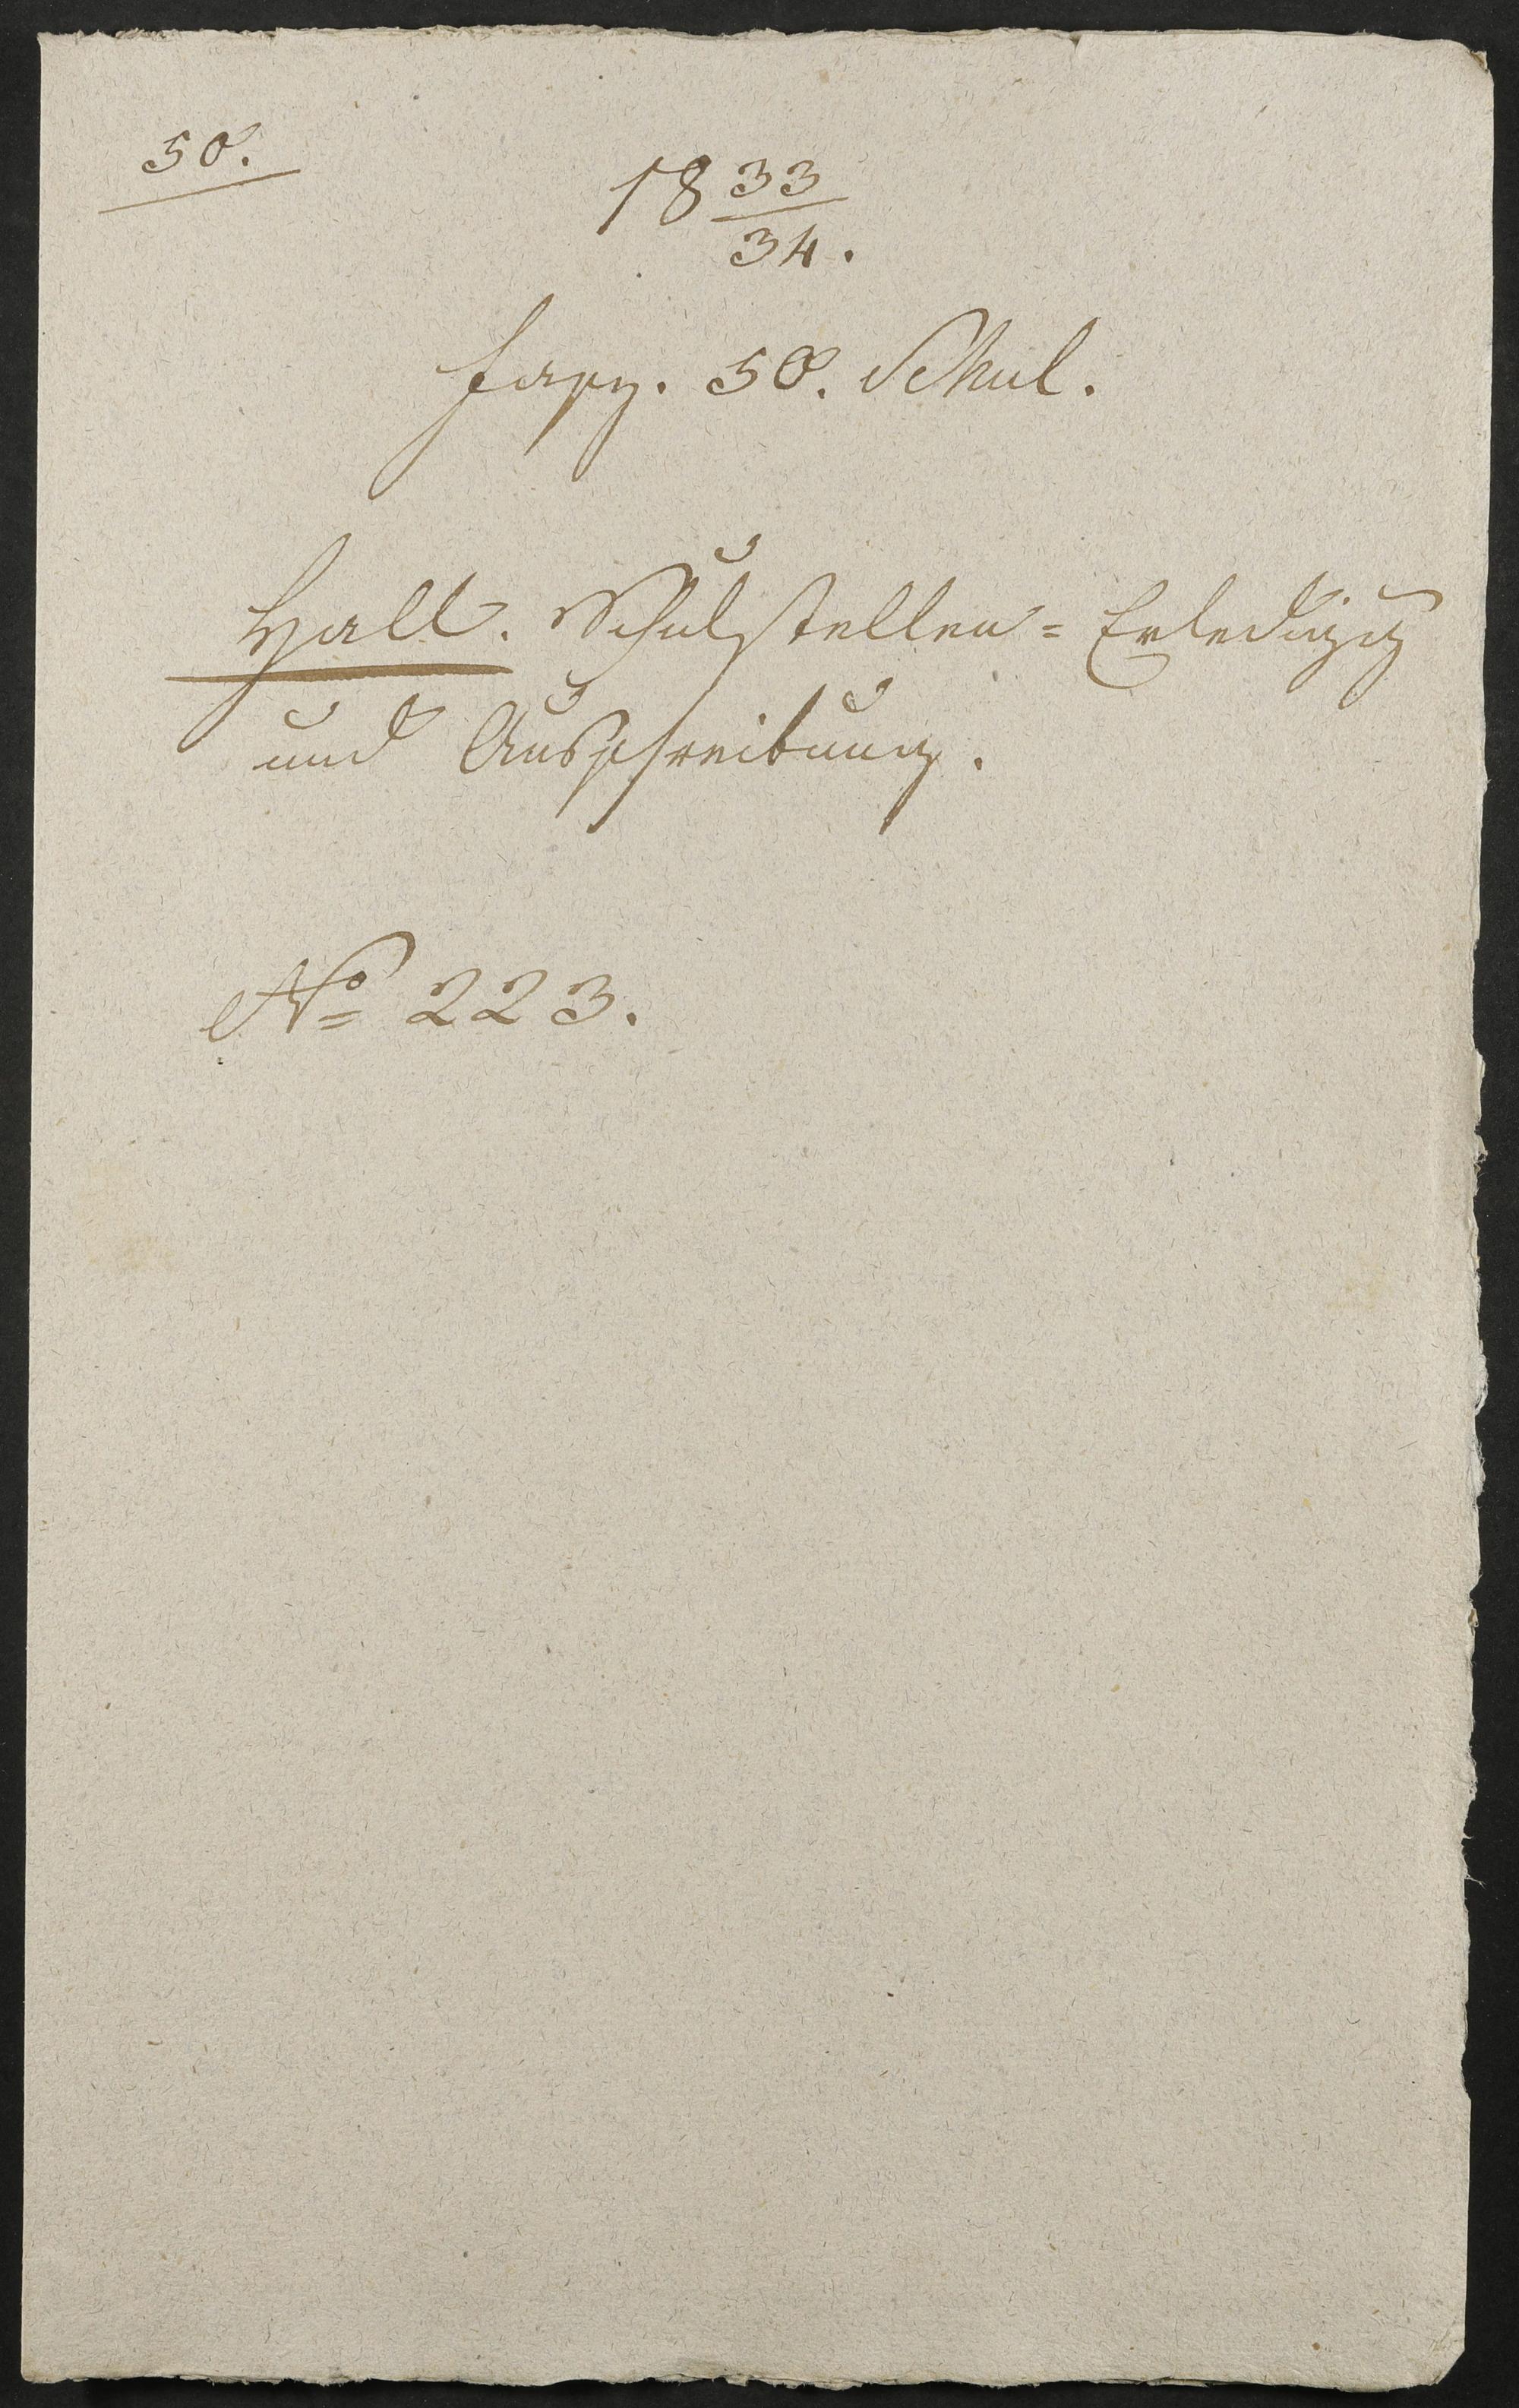 50.
18 33/34.
Fasz. 50. Schul.
Hall. Schulstellen = Erledigg
und Ausschreibung.
No 223.